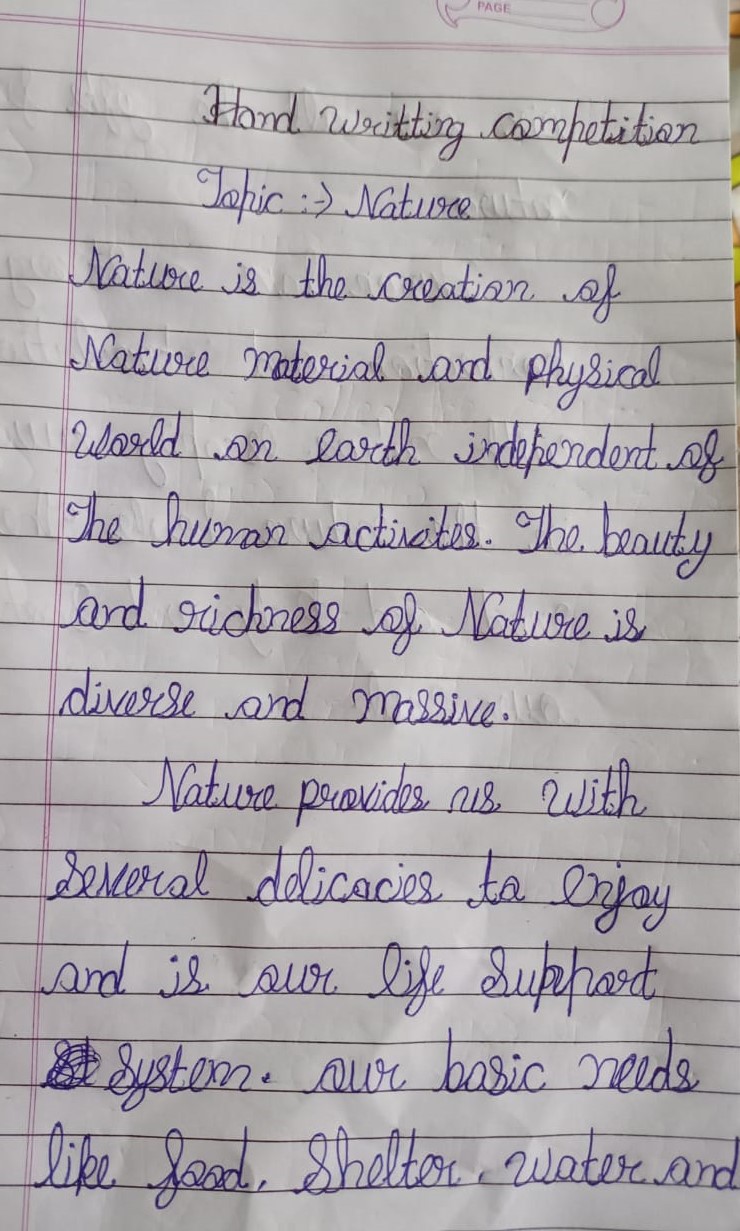 PAGE
Hand writting competition
Topic :→ Nature
Nature is the creation of
Nature material and physical
World on earth independent of
The human activites. The beauty
and richness of Nature is
diverse and massive.
Nature provides us with
Several delicacies to enjoy
and is our life Support
System. our basic needs
like food, Shelter, water and